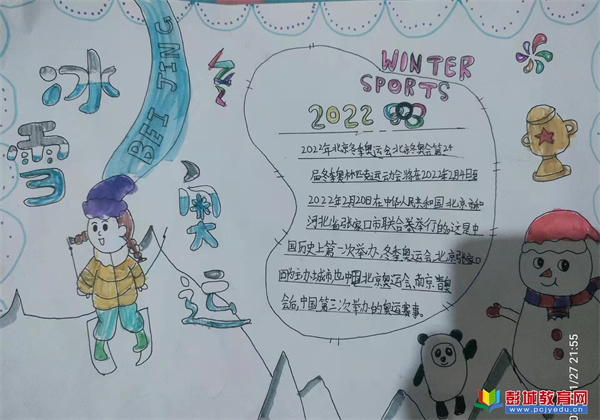 冰雪
奥运
BEIJING
WINTER
SPORTS
2022
2022年北京冬季奥运会北京冬奥会第24
届冬季奥林匹克运动会将在2022年2月4日至
2022年2月20日在中华人民共和国北京市和
河北省张家口市联合举行的这是中
国历史上第一次举办冬季奥运会北京张家口
同为主办城市也中国北京奥运会南京青奥
会后中国第三次举办的奥运赛事。
11/27 21:55
彭城教育网
www.pcjyedu.cn